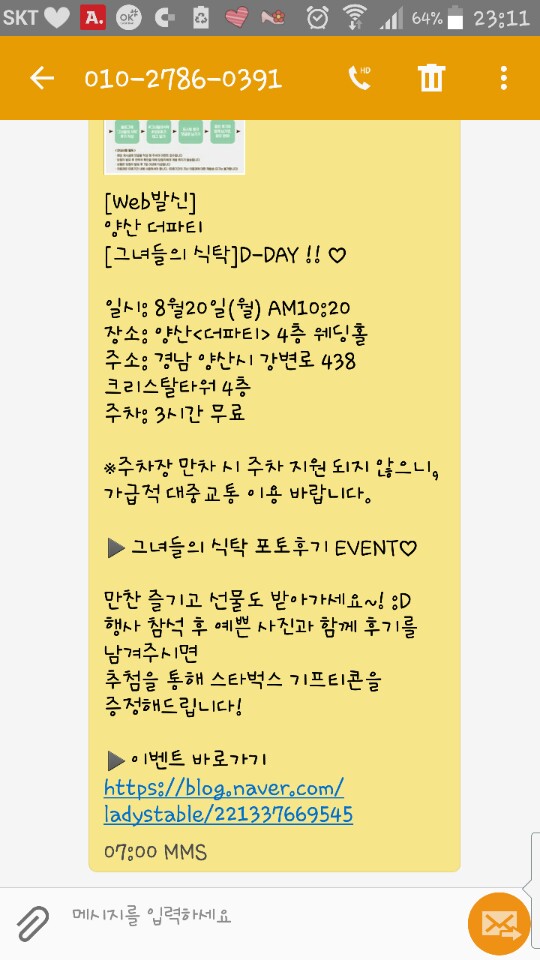 SKT
A.
OK
64%
23:11
010-2786-0391
HD
[Web발신]
양산 더파티
[그녀들의 식탁]D-DAY !! ♡
일시: 8월20일(월) AM10:20
장소: 양산<더파티> 4층 웨딩홀
주소: 경남 양산시 강변로 438
크리스탈타워 4층
주차: 3시간 무료
※주차장 만차 시 주차 지원 되지 않으니,
가급적 대중교통 이용 바랍니다.
▶ 그녀들의 식탁 포토후기 EVENT♡
만찬 즐기고 선물도 받아가세요~! :D
행사 참석 후 예쁜 사진과 함께 후기를
남겨주시면
추첨을 통해 스타벅스 기프티콘을
증정해드립니다!
▶ 이벤트 바로가기
https://blog.naver.com/
ladystable/221337669545
07:00 MMS
메시지를 입력하세요